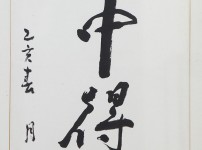 中得
乙亥春月